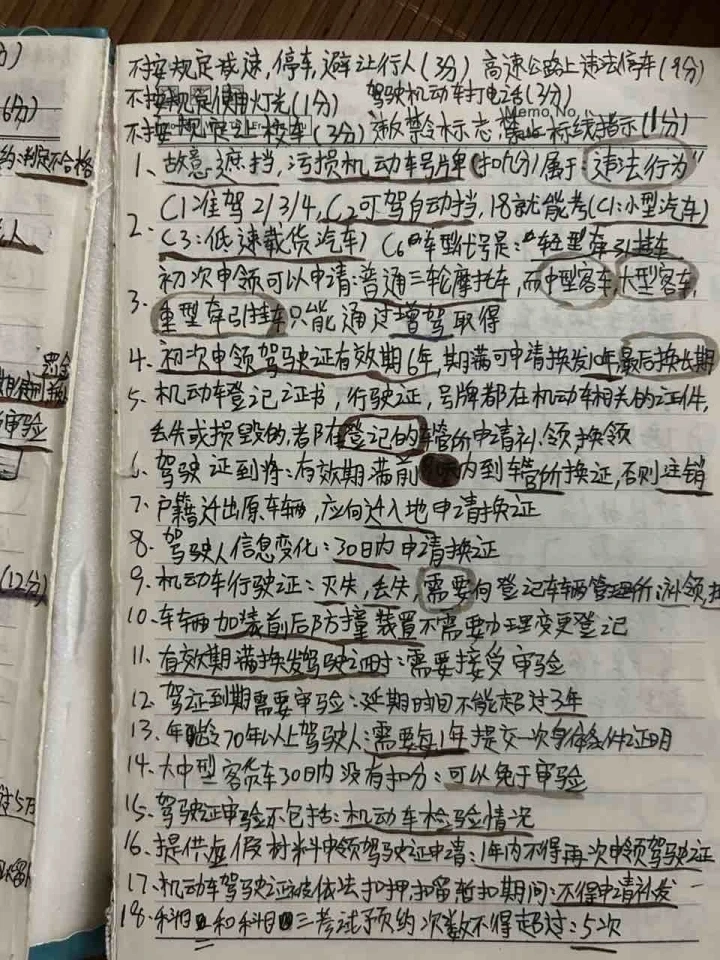 不按规定减速,停车,避让行人(3分) 高速公路上违法停车(9分)
不按规定使用灯光(1分) 驾驶机动车打电话(3分)
Memo No.
不按规定让校车(3分)违反禁令标志,禁止标线指示(1分)
1、故意遮挡,污损机动车号牌单(扣九分)属于:违法行为"
2. C1准驾2/3/4,C2可驾自动挡,18就能考(C1:小型汽车)
C3:低速载货汽车) C6车型代号是:轻型牵引挂车
3. 初次申领可以申请:普通三轮摩托车,而中型客车,大型客车,
重型牵引挂车只能通过增驾取得
4、初次申领驾驶证有效期6年,期满可申请换发10年最后换长期
5、机动车登记证书,行驶证,号牌都在机动车相关的证件,
丢失或损毁的,都在登记的车管所申请补.领,换领
6、驾驶证到将:有效期满前 内到车管所换证,否则注销
7、户籍迁出原车辆,应向迁入地申请换证
8、驾驶人信息变化:30日内申请换证
9、机动车行驶证:灭失,丢失,需要向登记车辆管理所:补领
10、车辆加装前后防撞装置不需要办理变更登记
11、有效期满换发驾驶证时:需要接受审验
12、驾证到期需要审验:延期时间不能超过3年
13、年龄70年以上驾驶人:需要每1年提交一次身体条件证明
14、大中型客货车30日内没有扣分:可以免于审验
15、驾驶证审验不包括:机动车检验情况
16、提供虚假材料申领驾驶证申请:1年内不得再次申领驾驶证
17、机动车驾驶证被依法扣押,扣留暂扣期间:不得申请补发
18、科目二和科目三考试预约次数不得超过:5次
6分)
判定不合格
人
罚金
审验
(12分)
过5万